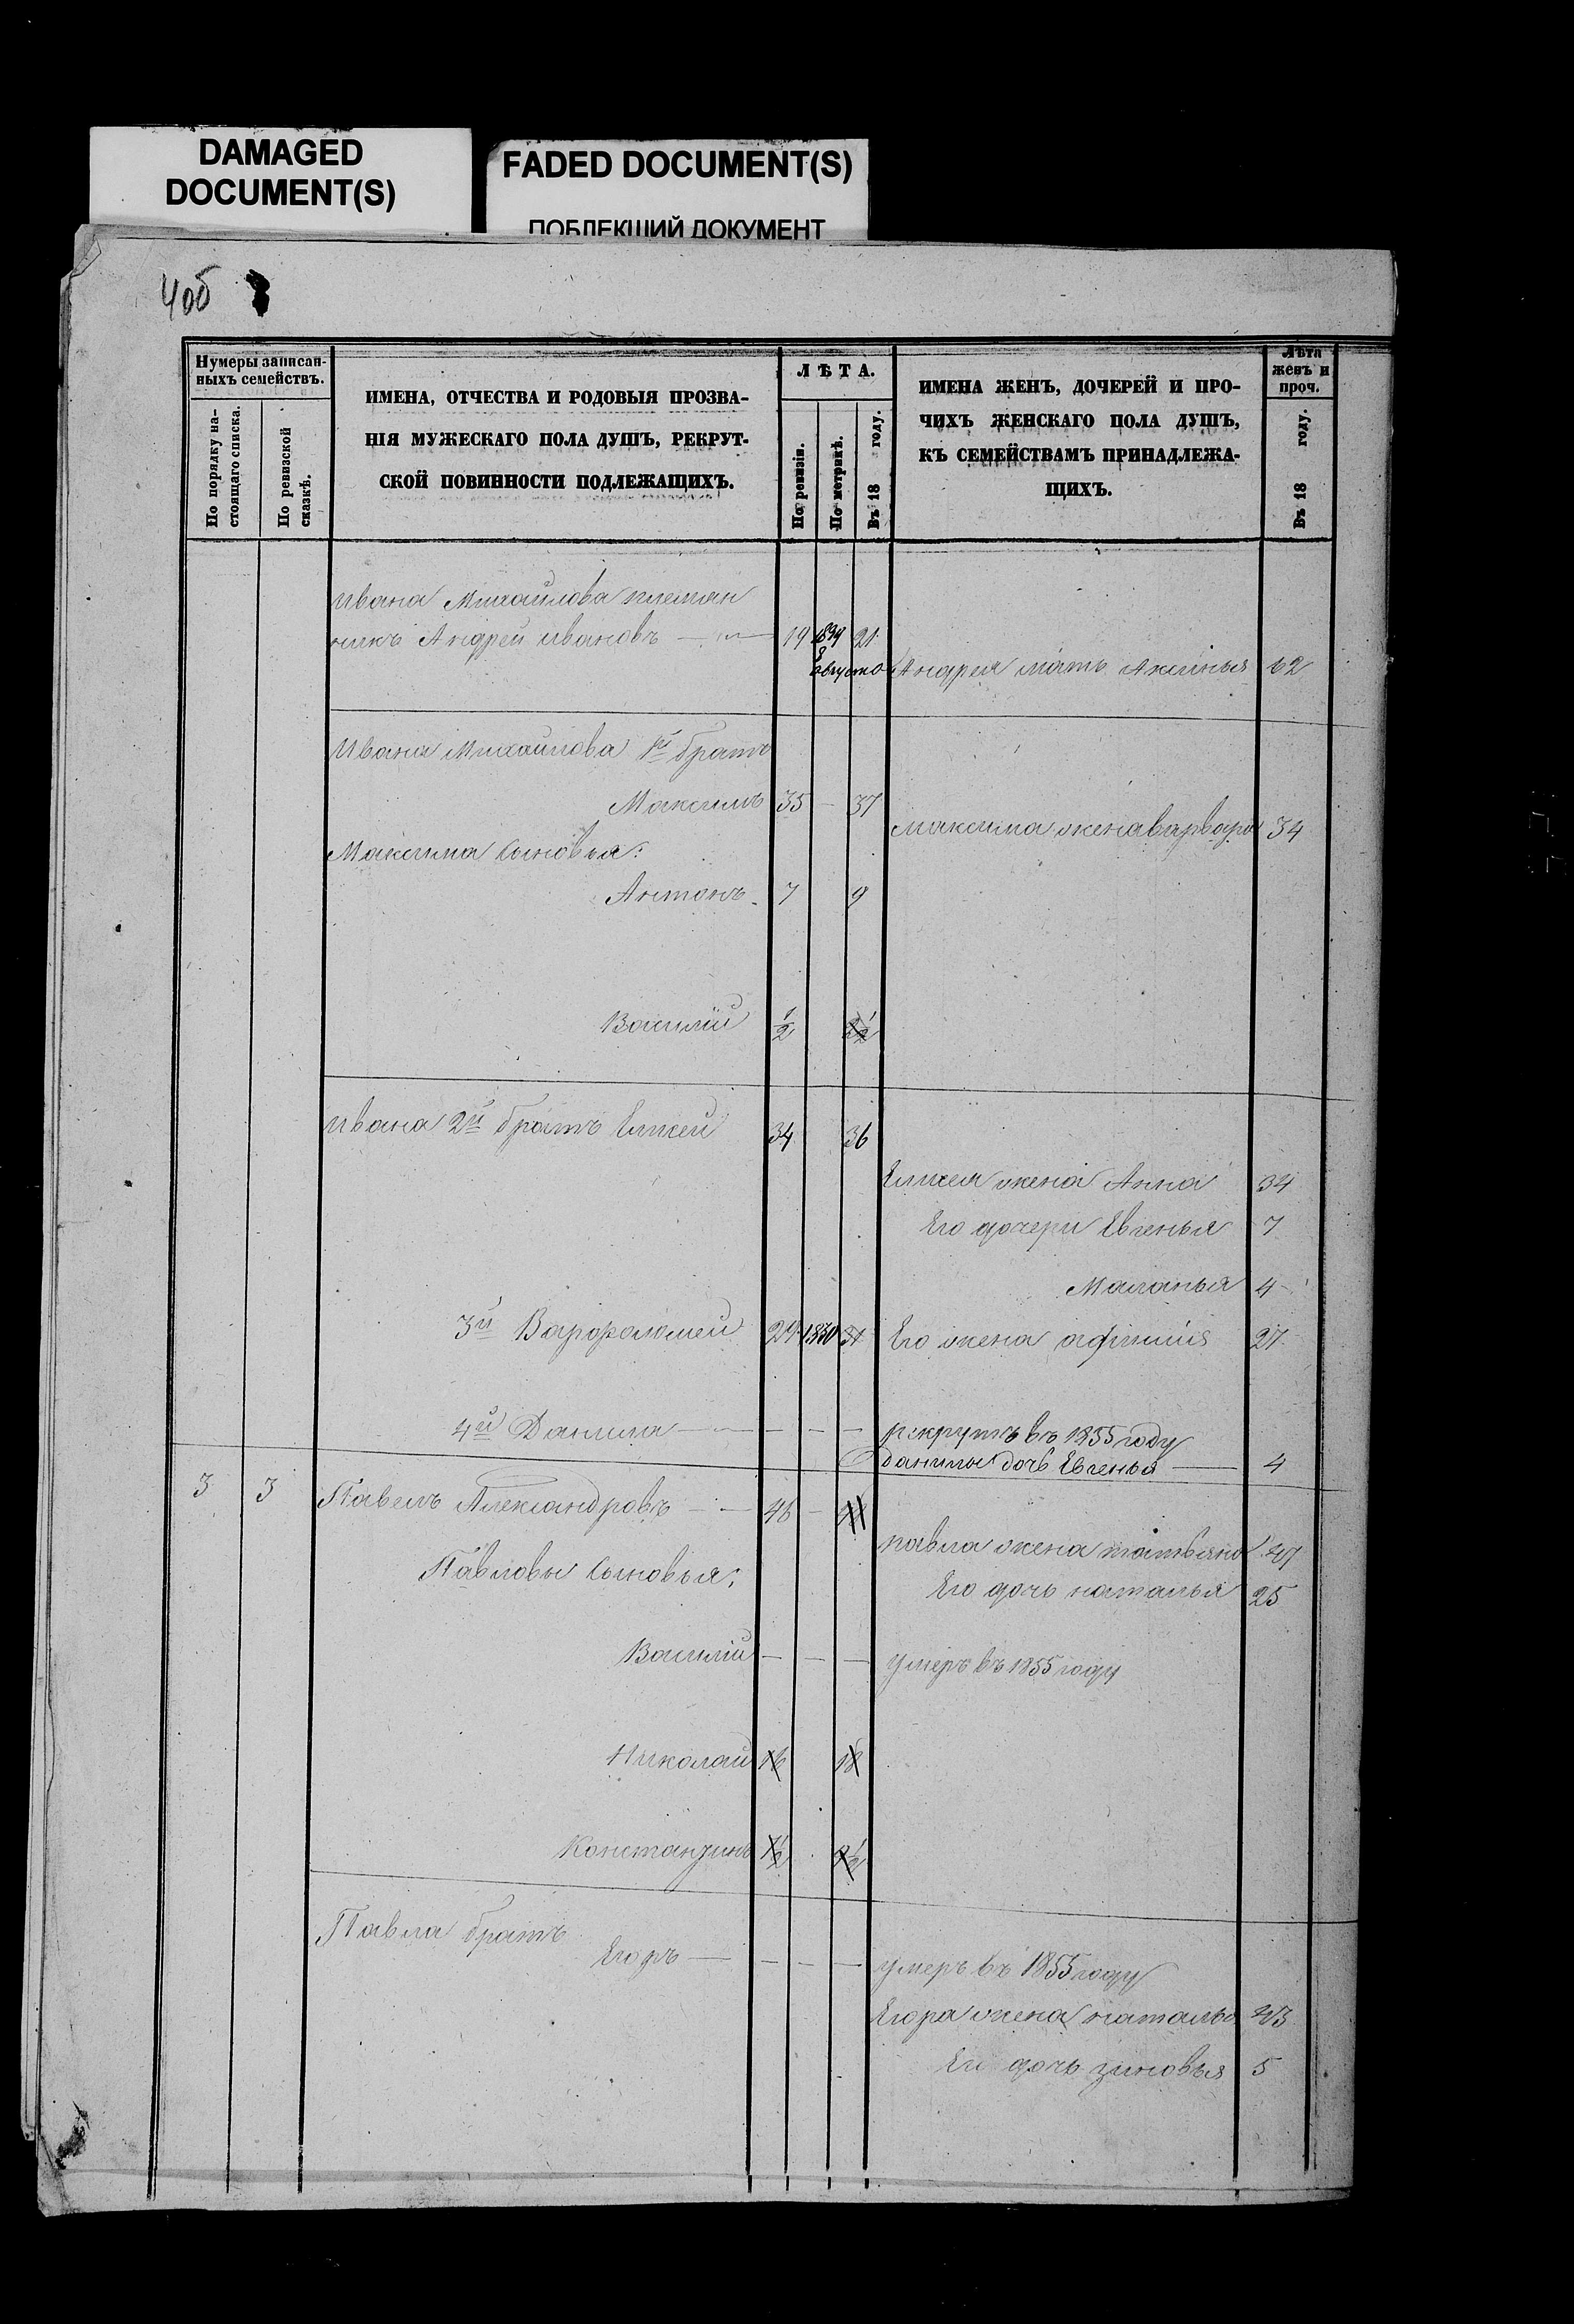 DAMAGED
DOCUMENT(S)
FADED DOCUMENT(S)
ПОБЛЕКШИЙ ДОКУМЕНТ
4об
Нумеры записан-
ныхъ семействъ.
По порядку на-
стоящаго списка.
По ревизской
сказкѣ.
ИМЕНА, ОТЧЕСТВА И РОДОВЫЯ ПРОЗВА-
НІЯ МУЖЕСКАГО ПОЛА ДУШЪ, РЕКРУТ-
СКОЙ ПОВИННОСТИ ПОДЛЕЖАЩИХЪ.
ЛѢТА.
По ревизіи.
По метрикѣ.
Въ 18 году.
ИМЕНА ЖЕНЪ, ДОЧЕРЕЙ И ПРО-
ЧИХЪ ЖЕНСКАГО ПОЛА ДУШЪ,
КЪ СЕМЕЙСТВАМЪ ПРИНАДЛЕЖА-
ЩИХЪ.
Лѣта
женъ и
проч.
Въ 18 году.
Ивана Михайлова племян
никъ Андрей Ивановъ — 19 1839 21
8
августа Андрея мать Аксинья 62
Ивана Михайлова 1й братъ
Максимъ 35 — 37
Максима жена варвара 34
Максима сыновья:
Антонъ 7 9
Василій 1/2 2 1/2
Ивана 2й братъ Елисей 34 36
Елисея жена Анна 34
Его дочери Евгенья 7
Маланья 4
3й Варфоломей 29 1830 31 Его жена афимия 27
4й Данила — — — — рекрутъ въ 1855 году
данилы дочь Евгенья — 4
3 3 Павелъ Александровъ — 46 — 48
павла жена татьяна 47
Павловы сыновья:
Его дочь наталья 25
Василій — — — умеръ въ 1855 году
Николай 16 18
Константинъ 1/2 2 1/2
Павла братъ
Егоръ — — — — умеръ въ 1855 году
Егора жена наталья 43
Его дочь зиновья 5